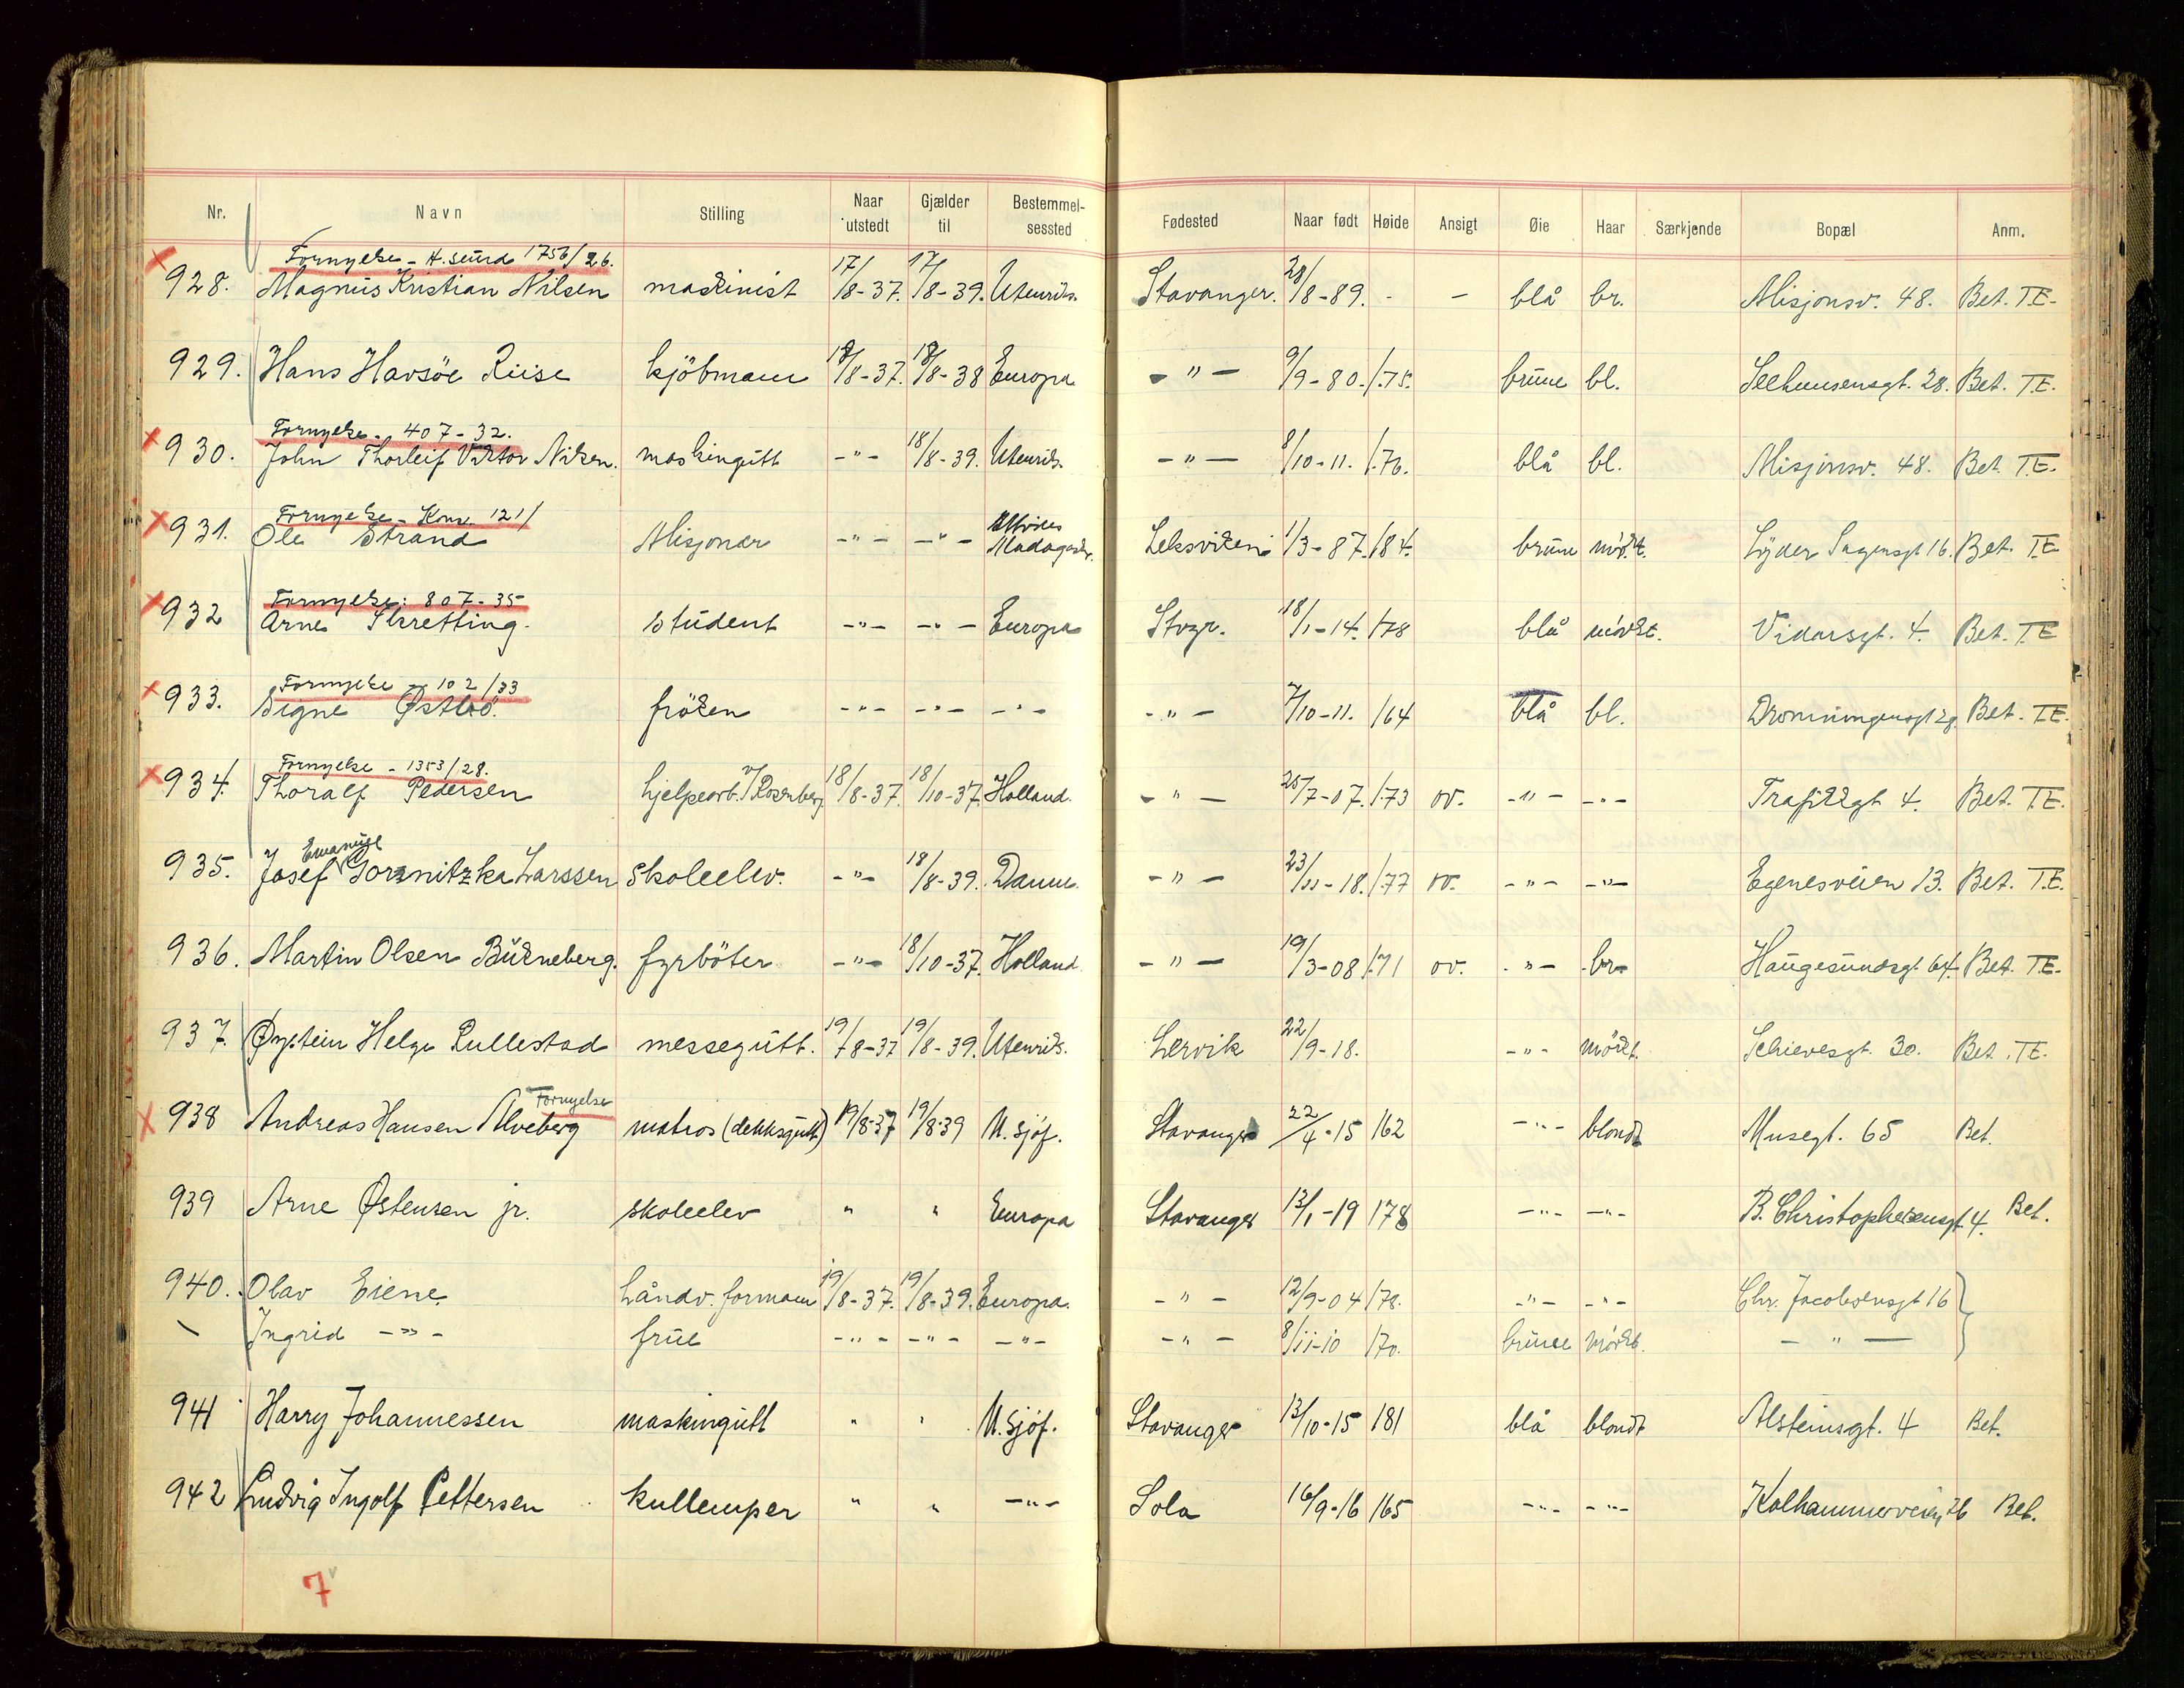 Nr. Navn Stilling Naar utstedt Gjælder til Bestemmelsessted Fødested Naar født Høide Ansigt Øie Haar Særkjende Bopæl Anm.
Fornyelse - H.sund 1756/26.
928. Magnus Kristian Nilsen maskinist 17/8-37. 17/8-39. Utenriks. Stavanger. 28/8-89. - - blå br. Misjonsv. 48. Bet. T.E.
929. Hans Havsöe Riise kjöbmann 18/8-37. 18/8-38 Europa - " - 9/9-80. 1.75. brune bl. Seehusensgt. 28. Bet. T.E.
Fornyelse - 407-32.
930. John Thorleif Viktor Nilsen. maskingutt - " - 18/8-39. Utenriks. - " - 8/10-11. 1.70. blå bl. Misjonsv. 48. Bet. T.E.
Fornyelse - Kons. 121/
931. Ole Strand Misjonær - " - - " - Madagaskar. Leksviken 1/3-87. 184. brune mörkt. Lyder Sagensgt 16. Bet. T.E.
Fornyelse: 807-35
932 Arne Skretting. student - " - - " - Europa Stvgr. 18/1-14. 178 blå mörkt. Vidarsgt. 4. Bet. T.E.
Fornyelse - 102/33
933. Signe Østbö. fröken - " - - " - - " - - " - 7/10-11. 164 blå bl. Dronningensgt 29. Bet. T.E.
Fornyelse - 1353/28.
934. Thoralf Pedersen hjelpearb. v/Rosenberg 18/8-37. 18/10-37. Holland. - " - 25/7-07. 1.73 ov. - " - - " - Trafikkgt 4. Bet. T.E.
Emanuel
935. Josef Gorznitzka Larssen skoleelev. - " - 18/8-39. Danm. - " - 23/11-18. 1.77 ov. - " - - " - Egenesveien 13. Bet. T.E.
936. Martin Olsen Bukneberg. fyrböter - " - 18/10-37. Holland - " - 19/3-08 1.71 ov. - " - br. Haugesundsgt 64. Bet. T.E.
937. Øystein Helge Lullestad messegutt. 19/8-37 19/8-39. Utenriks. Lervik 22/9-18. - " - mörkt. Schievesgt. 30. Bet. T.E.
Fornyelse
938 Andreas Hansen Alveberg matros (dekksgutt) 19/8-37 19/8-39 U. sjöf. Stavanger 22/4-15 162 - " - blondt Musegt. 65 Bet.
939 Arne Østensen jr. skoleelev " " Europa Stavanger 13/1-19 178 - " - - " - B. Christophersensgt. 4. Bet.
940. Olav Eiene håndv. formann 19/8-37. 19/8-39. Europa. - " - 12/9-04 178. - " - - " - Chr. Jacobsensgt 16 }
\ Ingrid - " - frue - " - - " - - " - - " - 8/11-10 170. brune mörkt. - " -
941 Harry Johannessen maskingutt " " U. sjöf. Stavanger 13/10-15 181 blå blondt Alsteinsgt. 4 Bet.
942 Ludvig Ingolf Pettersen kullemper " " - " - Sola 16/9-16 165 - " - - " - Kalhammerveien 26 Bet.
7